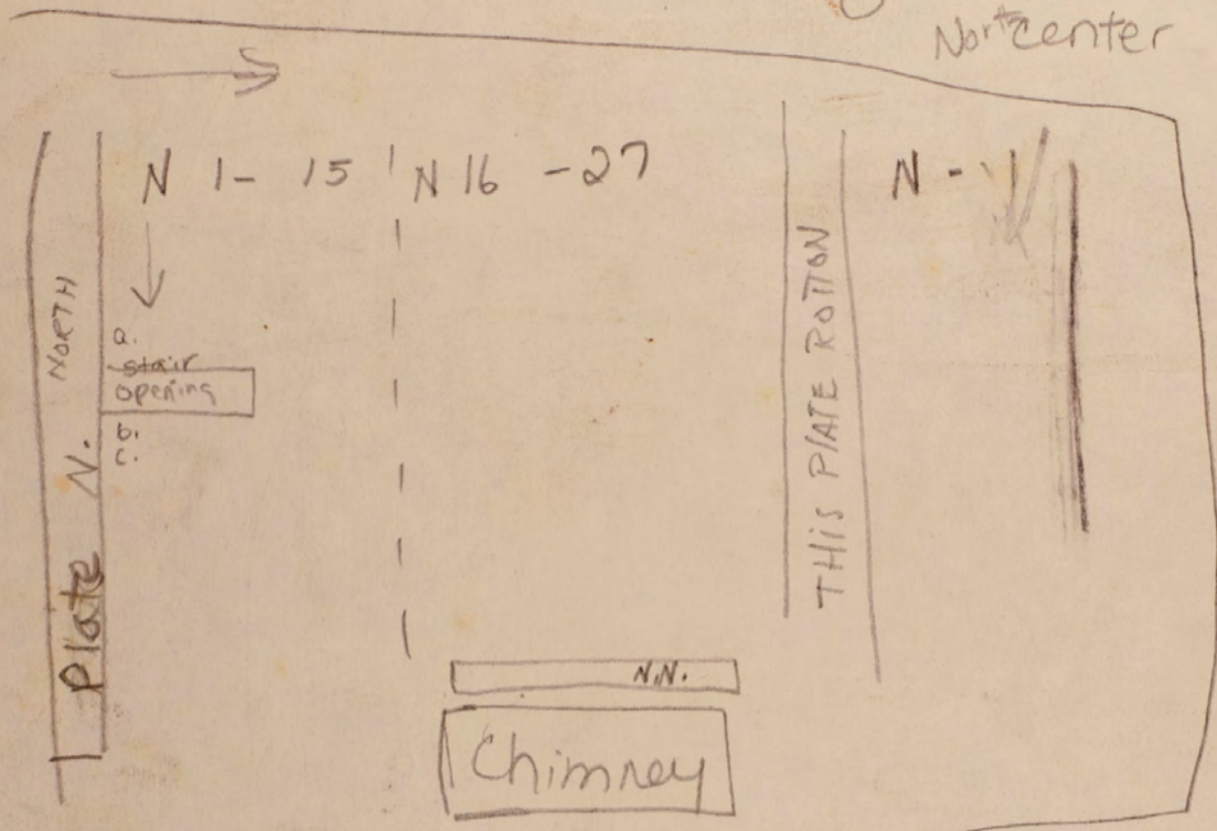 Nort center
N 1- 15 N 16 -27
N -
NORTH
Plate N.
a.
stair
opening
THIS PLATE ROTTON
N.N.
Chimney